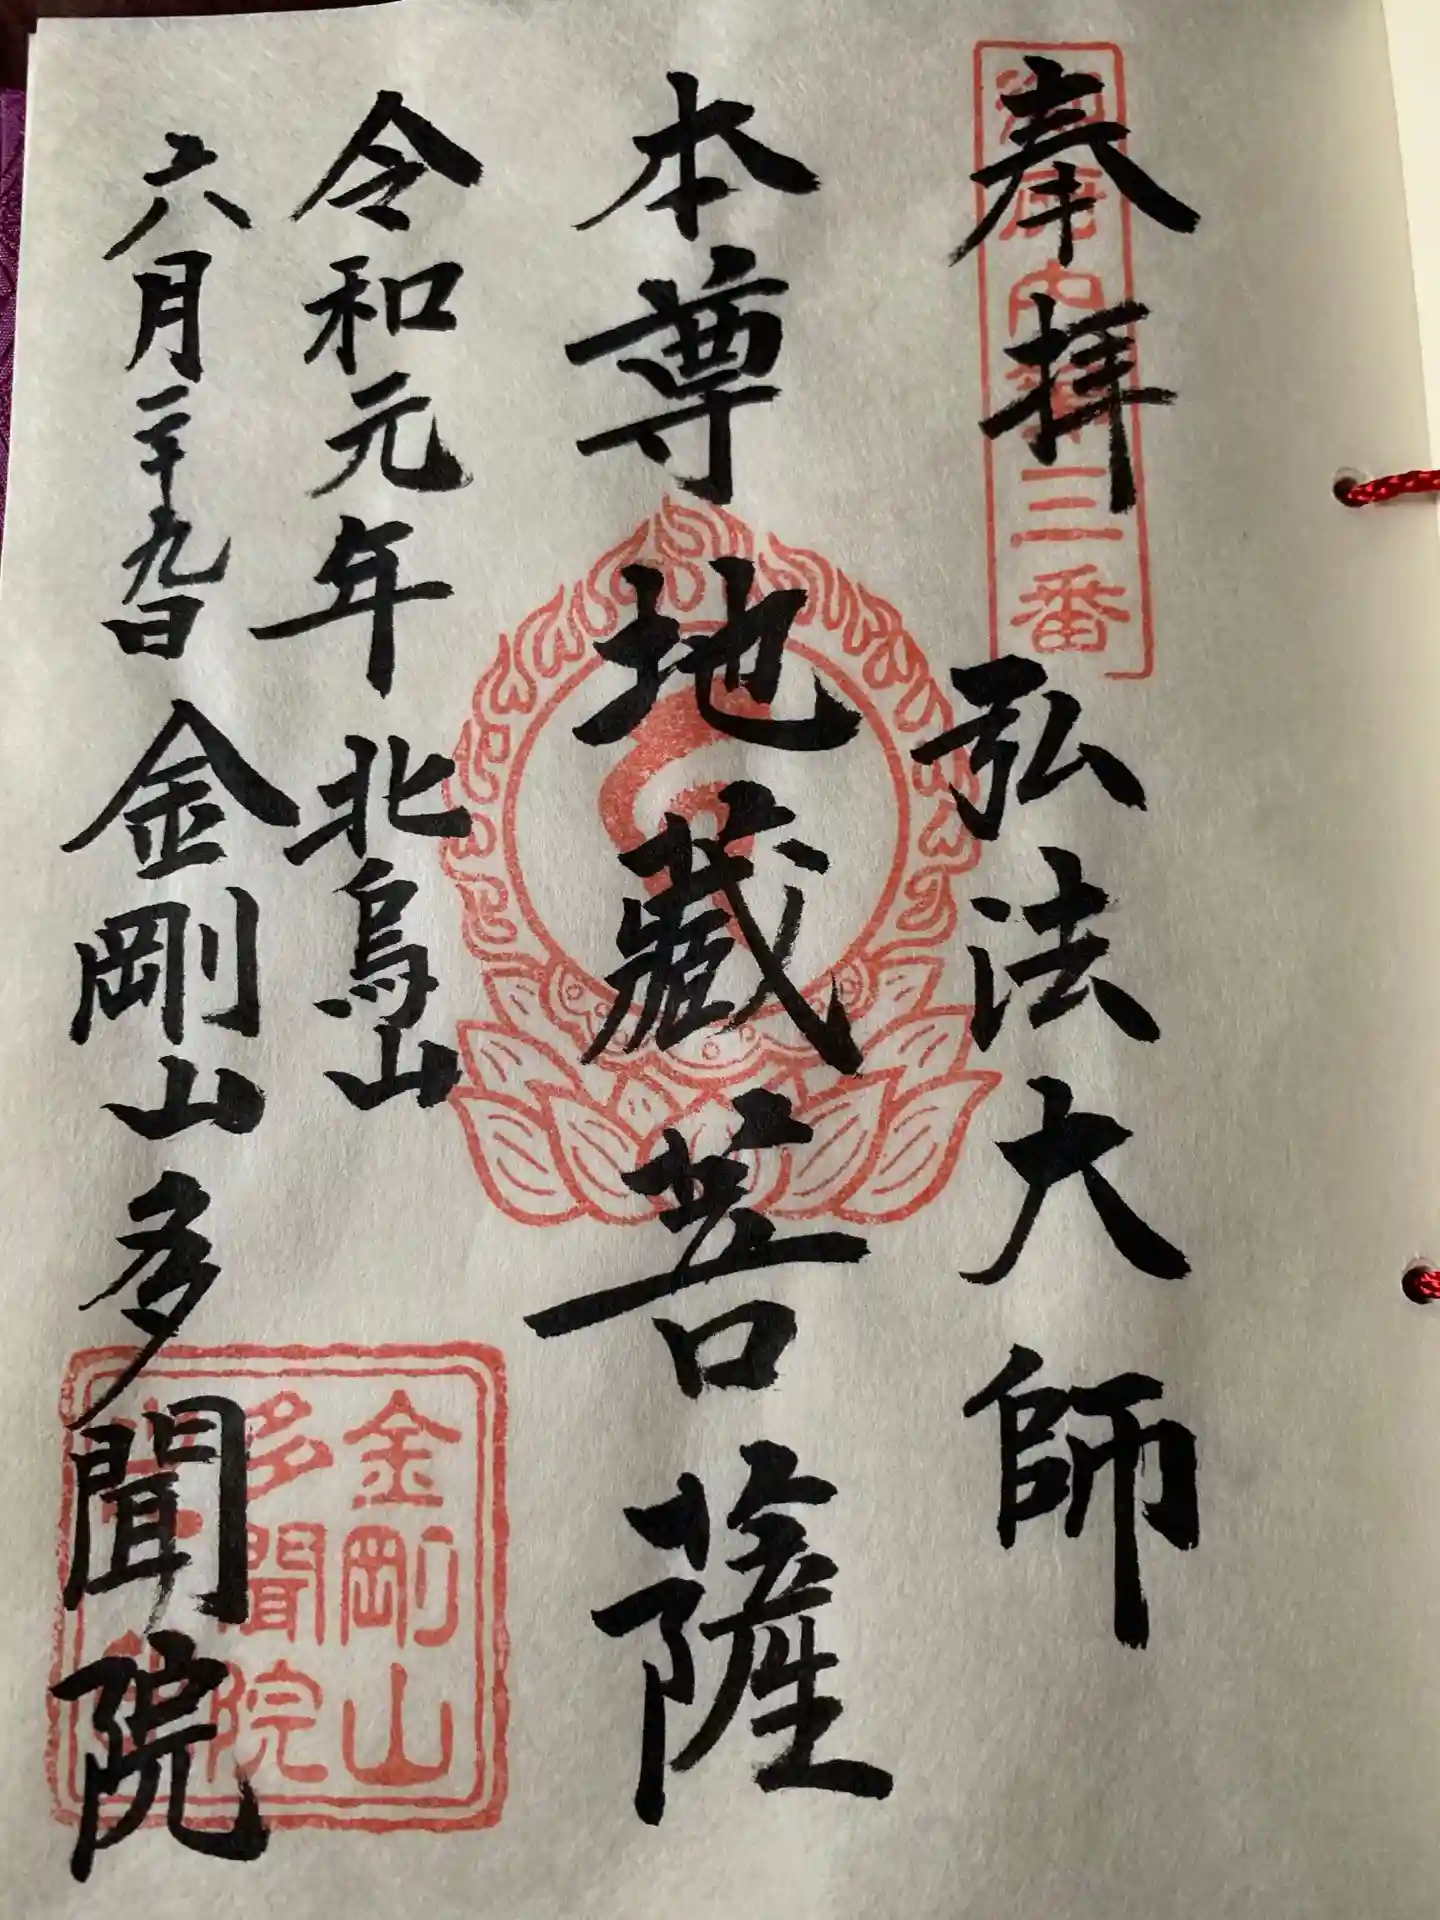 奉拝
弘法大師
本尊 地蔵菩薩
令和元年 北烏山
六月二十九日 金剛山多聞院
三番
金剛山
多聞院